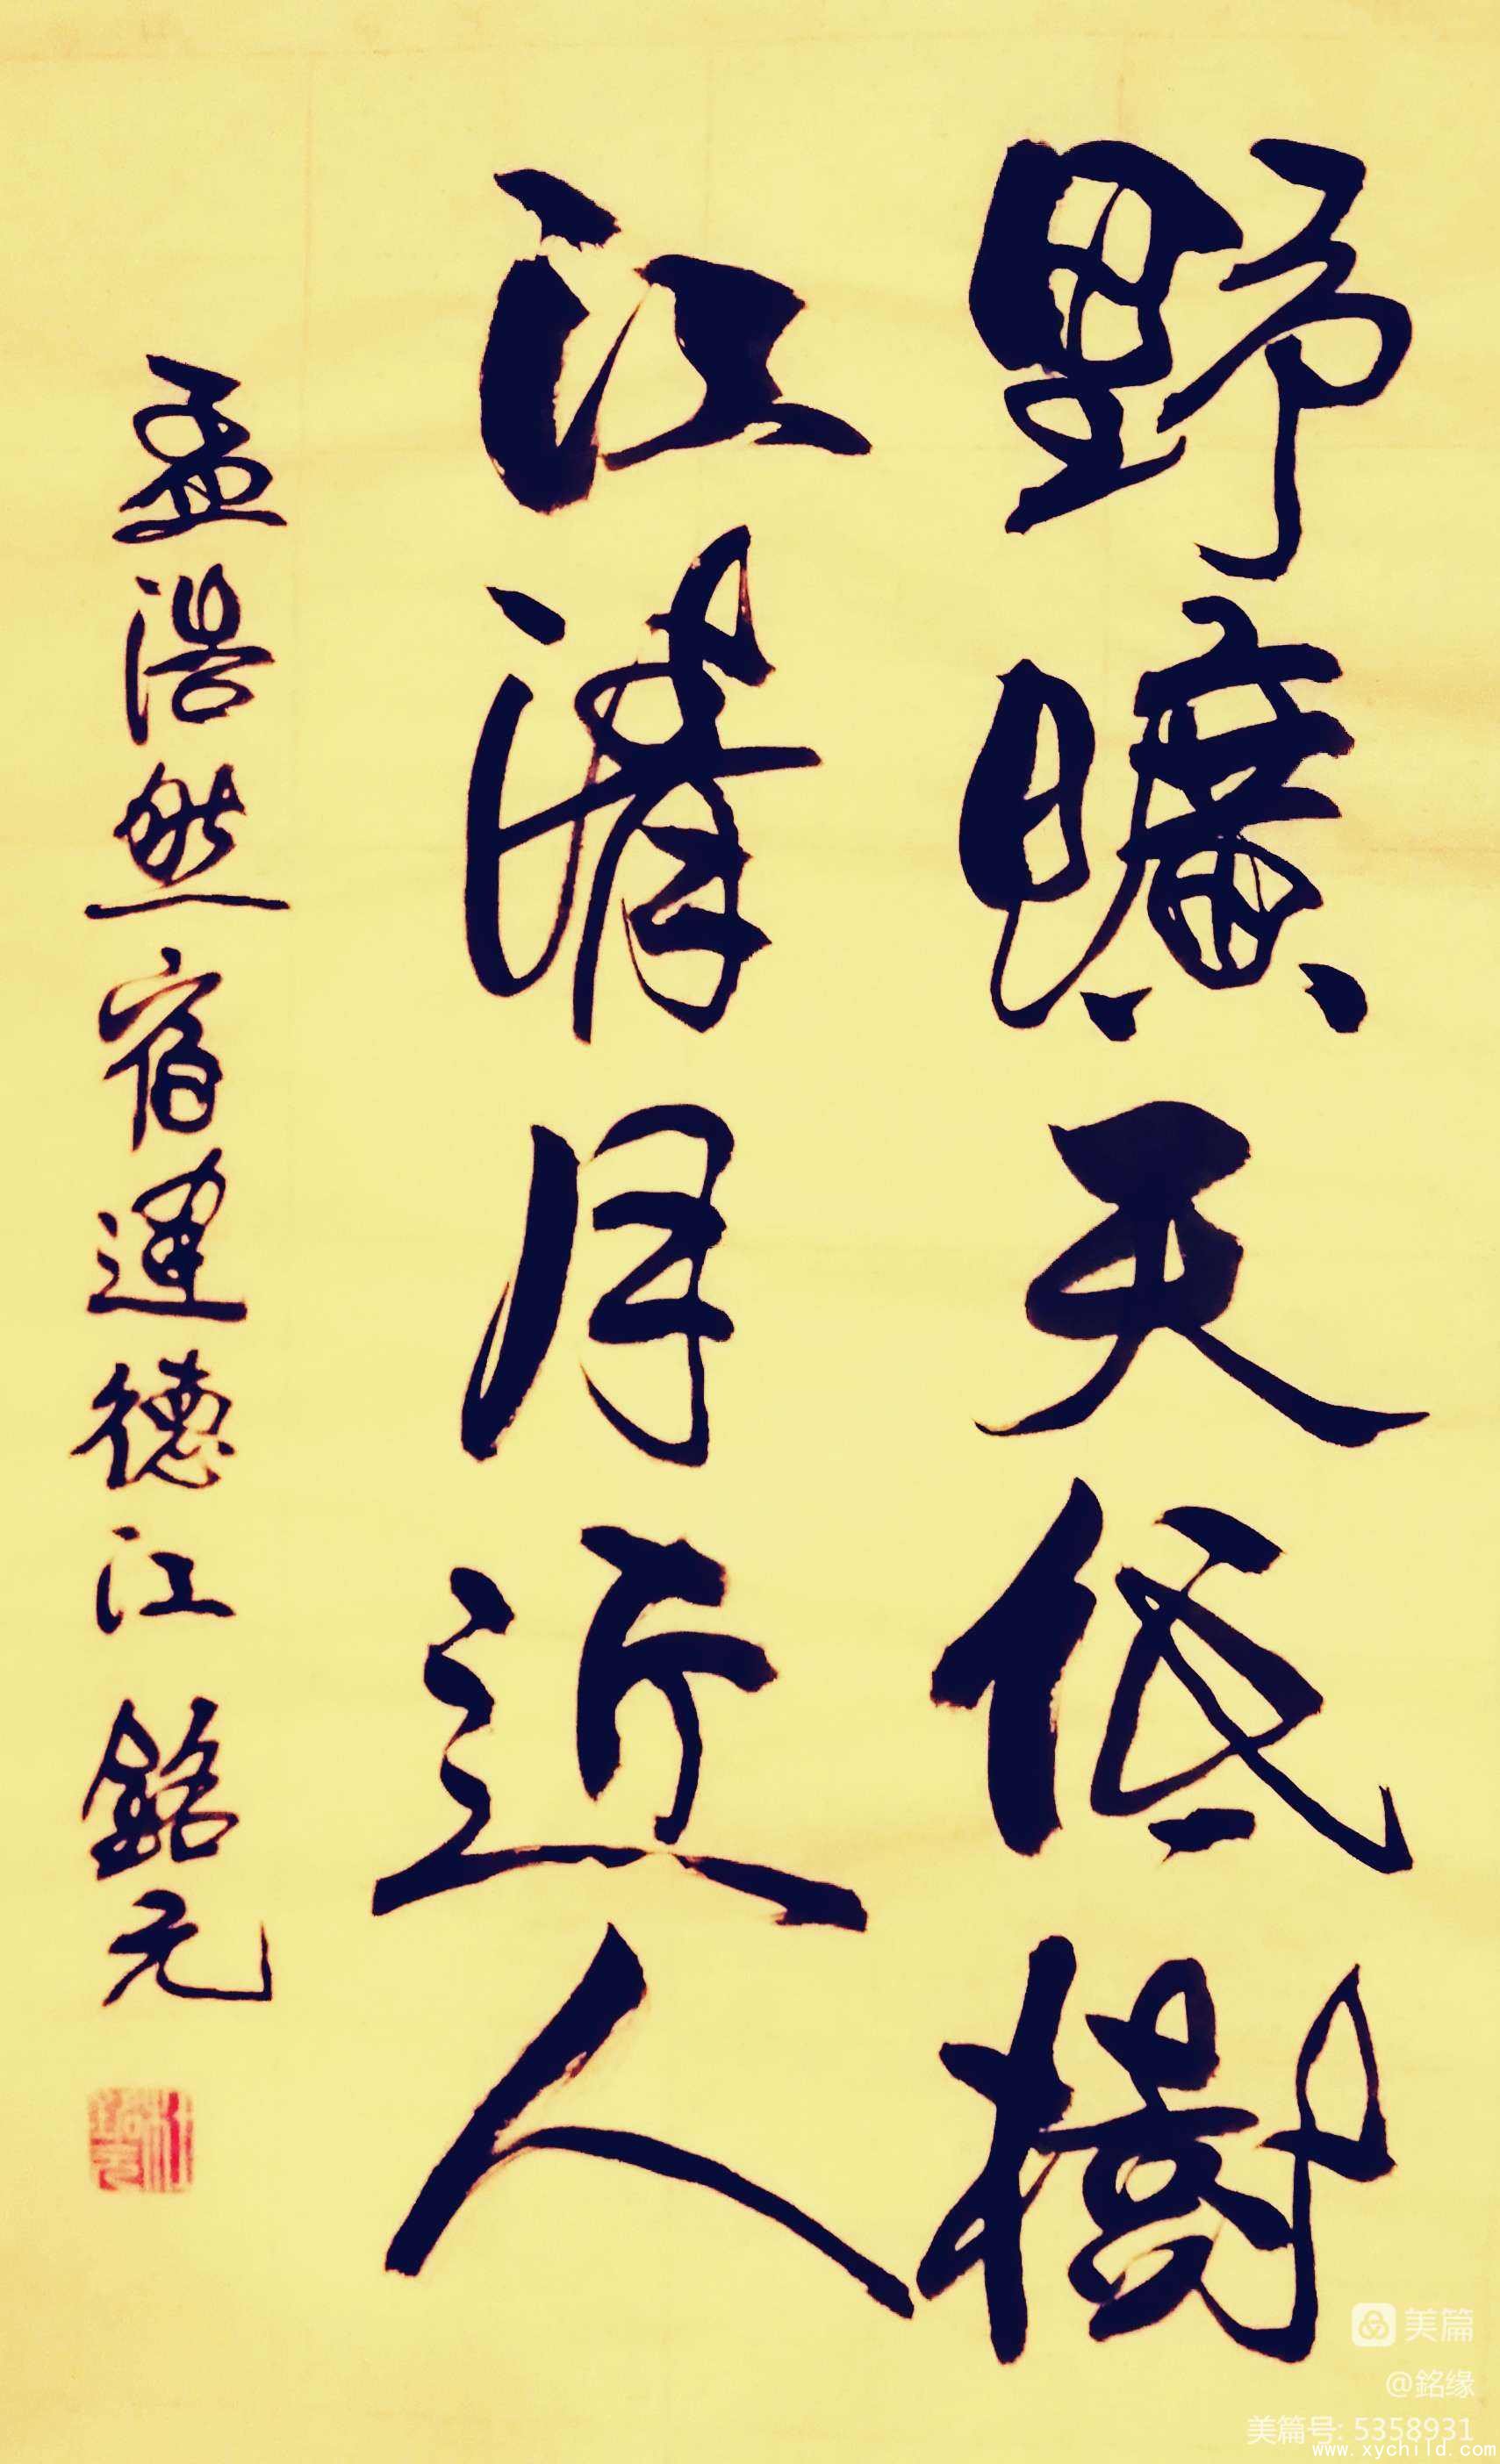 野曠天低樹
江清月近人
孟浩然宿建德江 銘元
美篇
@銘缘
美篇号: 5358931
www.xychild.com